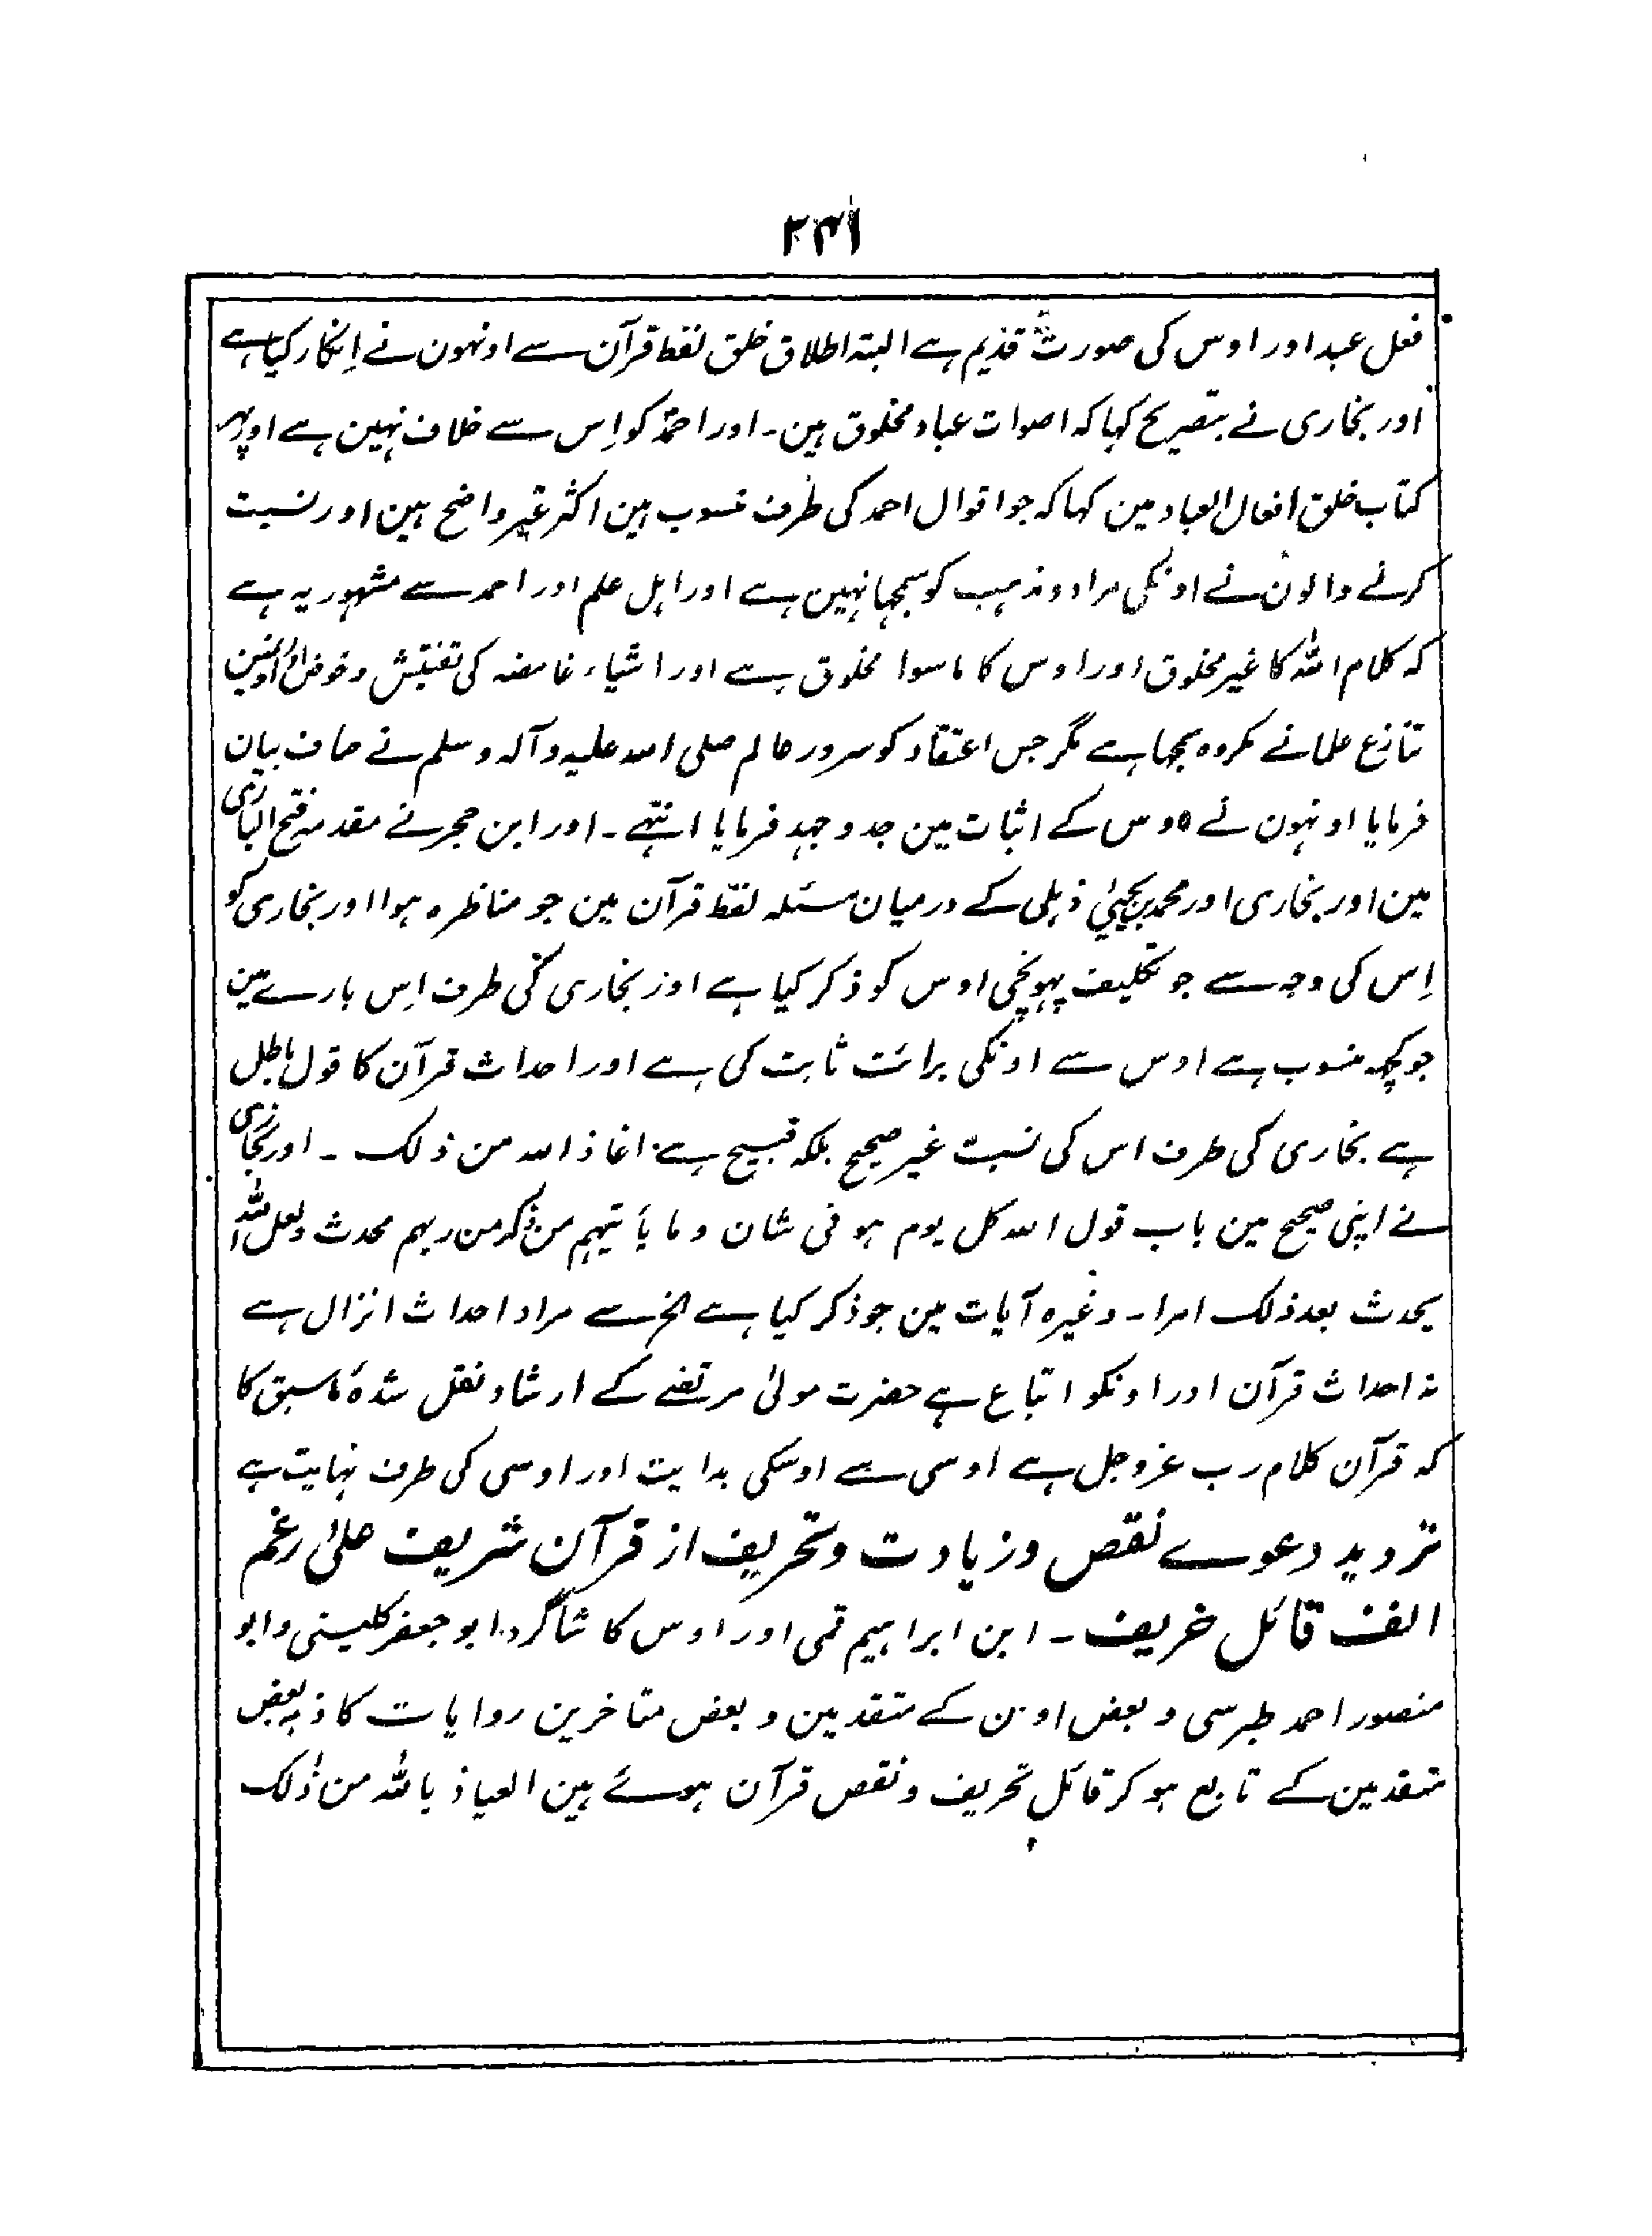 ۲۴۱
فعل عبد اور اوس کی صورت قدیم ہے البتہ اطلاق خلق لفظ قرآن سے اونہون نے اِنکار کیا ہے
اور بخاری نے بتصریح کہا کہ اصوات عباد مخلوق ہین۔ اور احمدؒ کو اِس سے خلاف نہین ہے اور پہر
کتاب خلق افعال العباد مین کہا کہ جو اقوال احمد کی طرف منسوب ہین اکثر غیر واضح ہین اور نسبت
کرنے والون نے اونکی مراد و مذہب کو سمجہا نہین ہے اور اہل علم اور احمد سے مشہور یہ ہے
کہ کلام اللہ کا غیر مخلوق اور اوس کا ماسوا مخلوق ہے اور اشیاء غامضہ کی تفتیش و خوض اور اونمین
تنازع علما نے مکروہ سمجہا ہے مگر جس اعتقاد کو سرور عالم صلی اللہ علیہ وآلہ وسلم نے صاف بیان
فرمایا اونہون نے اوس کے اثبات مین جد و جہد فرمایا انتہے۔ اور ابن حجر نے مقدمہ فتح الباری
مین اور بخاری اور محمد بن یحییٰ ذہلی کے درمیان مسئلہ لفظ قرآن مین جو مناظرہ ہوا اور بخاری کو
اِس کی وجہ سے جو تکلیف پہونچی اوس کو ذکر کیا ہے اور بخاری کی طرف اِس بارے مین
جو کچہ منسوب ہے اوس سے اونکی برائت ثابت کی ہے اور احداث قرآن کا قول باطل
ہے بخاری کی طرف اس کی نسبت غیر صحیح بلکہ قبیح ہے اعاذ اللہ من ذلک ۔ اور بخاری
نے اپنی صحیح مین باب قول اللہ کل یوم ہو فی شان و ما یأتیہم من ذکر من ربہم محدث و لعل اللہ
یحدث بعد ذلک امرا۔ وغیرہ آیات مین جو ذکر کیا ہے الخ سے مراد احداث انزال ہے
نہ احداث قرآن اور اونکو اتباع ہے حضرت مولیٰ مرتضے کے ارشاد نقل شدۂ ماسبق کا
کہ قرآن کلام رب عزوجل ہے اوسی سے اوسکی بدایت اور اوسی کی طرف نہایت ہے
تردید دعوے نقص وزیادت وتحریف از قرآن شریف علیٰ رغم
الف قائل خریف۔ ابن ابراہیم قمی اور اوس کا شاگرد ابو جعفر کلینی و ابو
منصور احمد طبرسی و بعض اون کے متقدمین و بعض متاخرین روایات کاذبہ بعض
متقدمین کے تابع ہو کر قائل تحریف و نقص قرآن ہوئے ہین العیاذ باللہ من ذٰلک